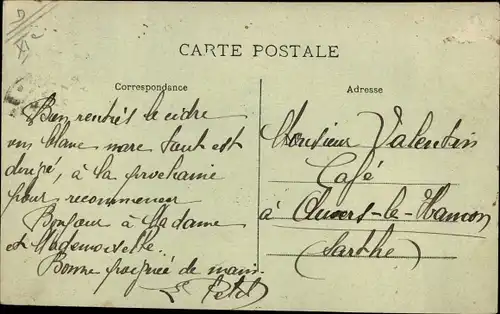 D
XI e
CARTE POSTALE
Correspondance
Bien rentrés le cidre
vin blanc marc tout est
, à la prochaine
pour recommencer
Bonjour à Madame
et Mademoiselle.
Bonne poignée de main.
Petit
Adresse
Monsieur Valentin
Café
à Auvers-le-Hamon
(Sarthe)